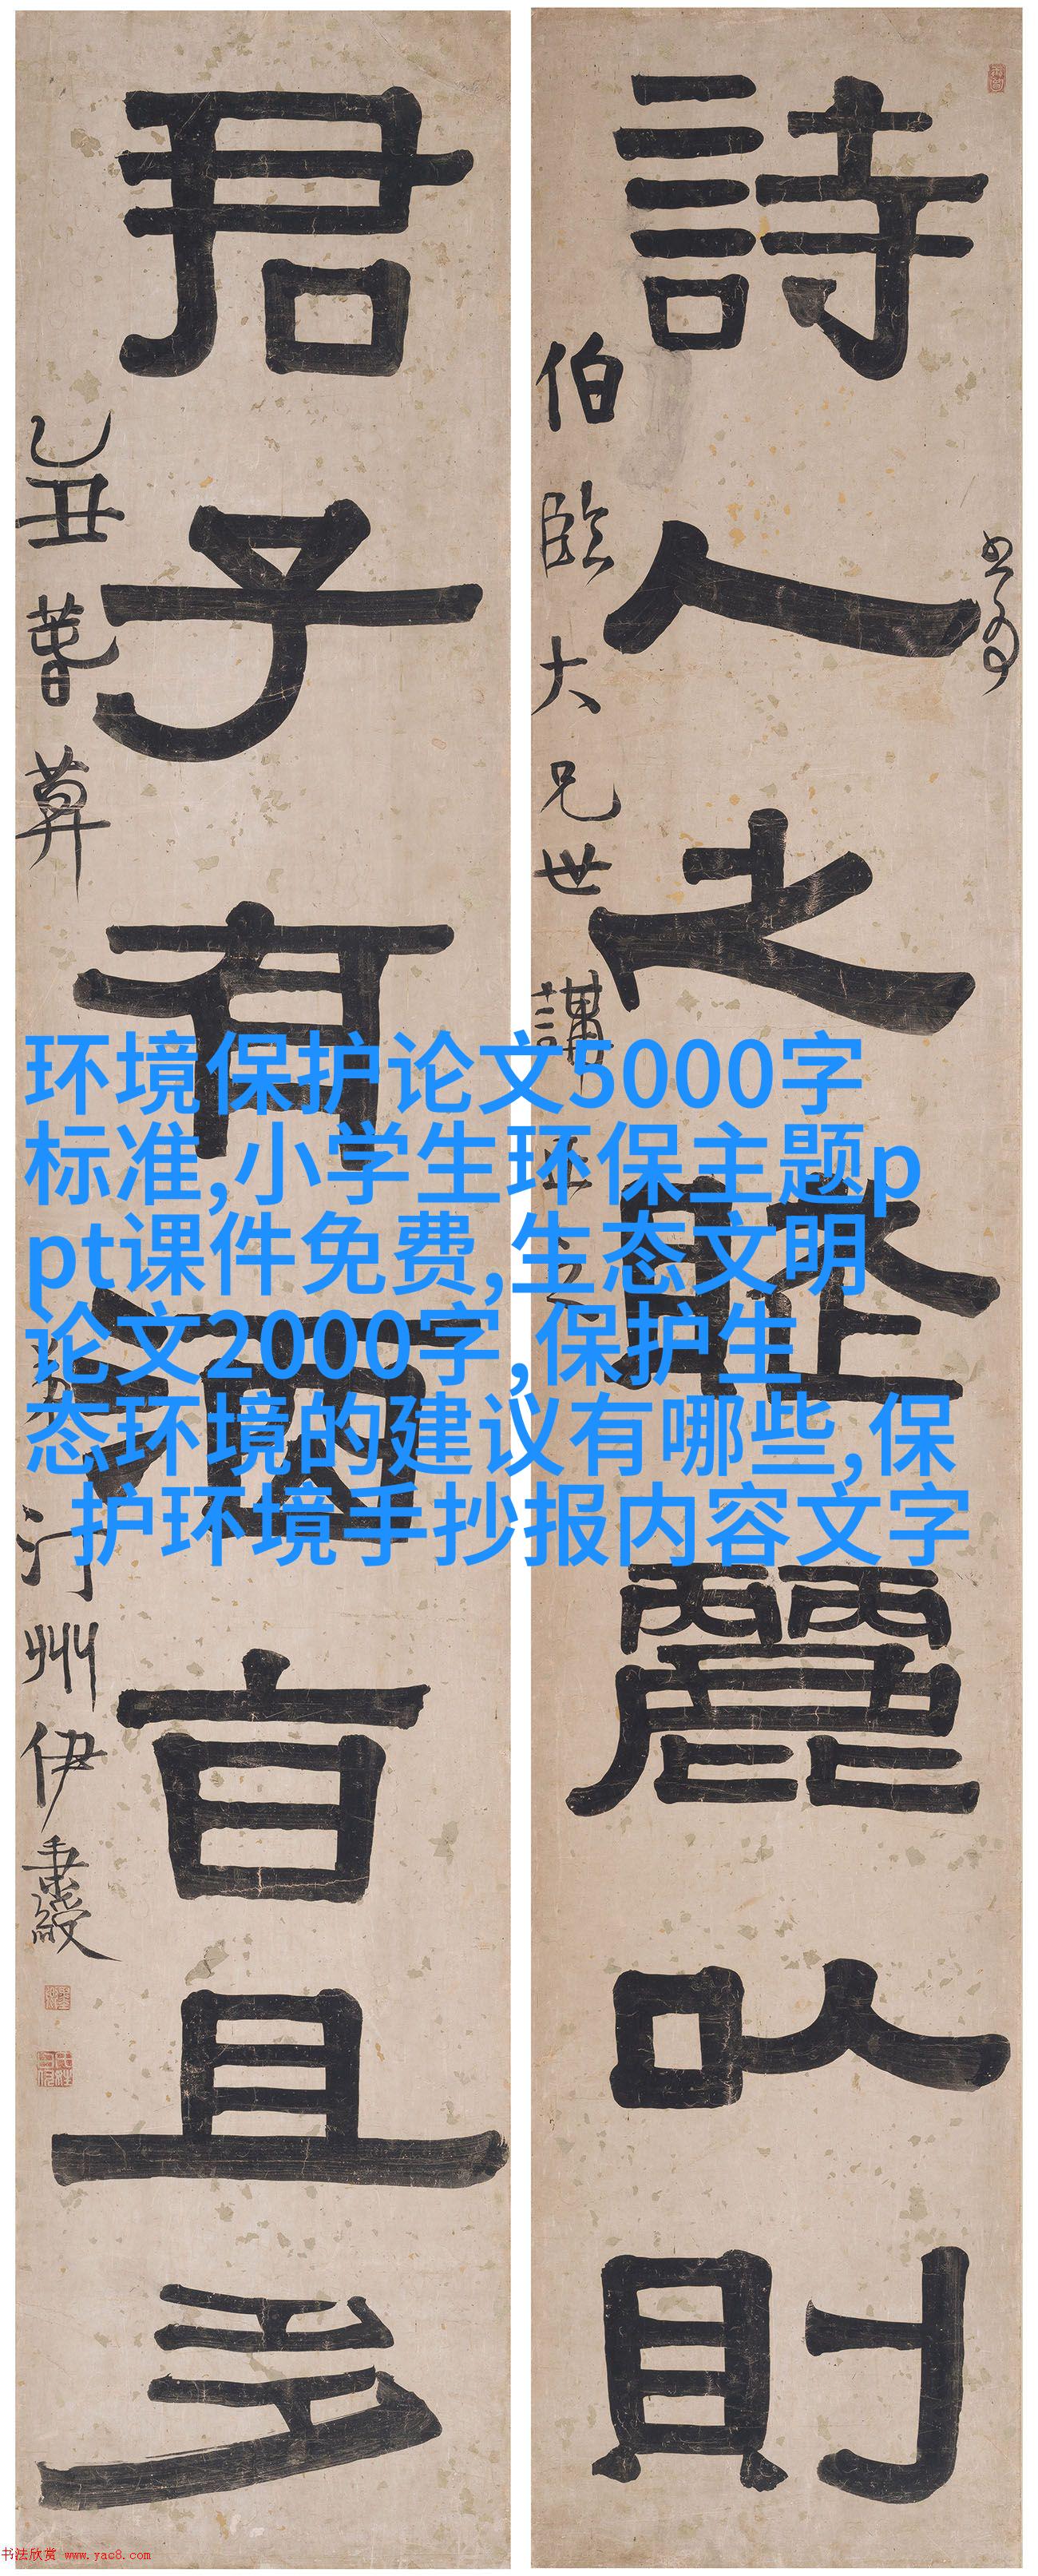 詩人之賦麗以則
君子有酒旨且多
书为
伯臨大兄世講正之
乙丑暮春
汀州伊秉綬
环境保护论文5000字
标准,小学生环保主题p
pt课件免费,生态文明
论文2000字,保护生
态环境的建议有哪些,保
护环境手抄报内容文字
书法欣赏 www.yac8.com